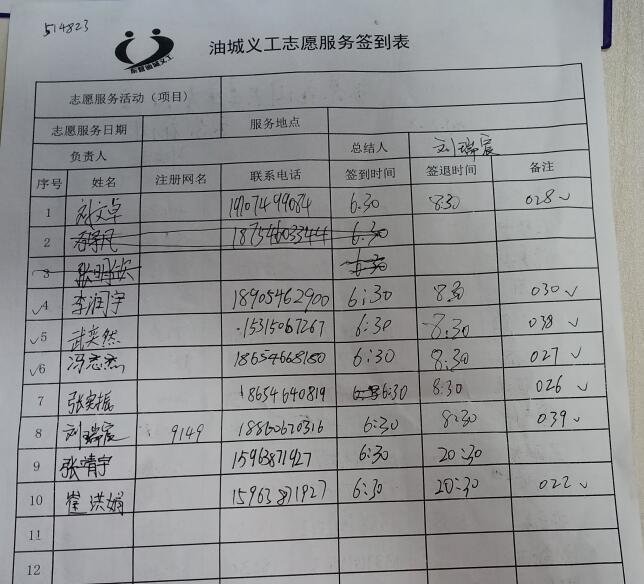 514823
东营油城义工
油城义工志愿服务签到表
志愿服务活动（项目）
志愿服务日期 服务地点
负责人 总结人 刘瑞宸
序号 姓名 注册网名 联系电话 签到时间 签退时间 备注
1 刘文卓 19107499084 6:30 8:30 028✓
2 18754603344 6:30
3 张明 6:30
✓4 李润宇 18905462900 6:30 8:30 030✓
✓5 武奕然 15315067267 6:30 8:30 038✓
✓6 冯志杰 18654668180 6:30 8:30 027✓
7 张宪振 18654640819 6:30 8:30 026✓
8 刘瑞宸 9149 18860670316 6:30 8:30 039✓
9 张靖宇 15963871927 6:30 20:30
10 崔洪娟 15963871927 6:30 20:30 022✓
11
12